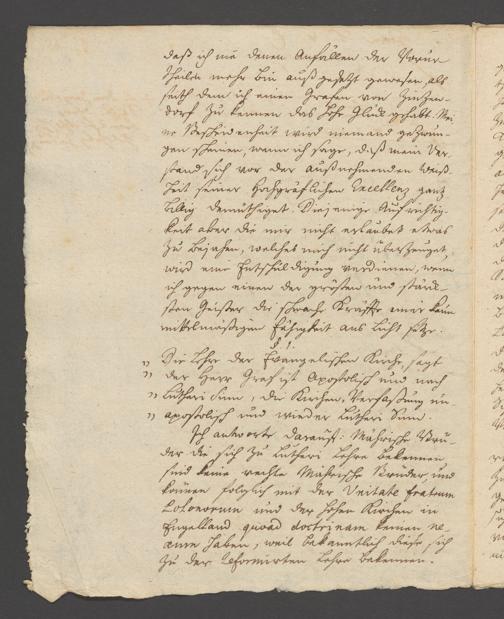 daß ich nie denen Anfällen der Vorur-
theilen mehr bin auß gesetzt gewesen, als
seith dem ich einen Grafen von Zinzen-
dorf zu kennen das hohe Glück gehabt. Mei-
ne Bescheidenheit wird niemand gezwun-
gen scheinen, wann ich sage, daß mein Ver-
stand sich vor der außnehmenden Weiß-
heit seiner Hochgräflichen Excellenz ganz
billig demüthiget. Diejenige Aufrichtig-
keit aber die mir nicht erlaubet etwas
zu bejahen, welches mich nicht überzeuget,
wird eine Entschuldigung verdienen, wenn
ich gegen einen der grösten und stärck-
sten Geister die schwache Kräffte einer kaum
mittelmäßigen Fähigkeit ans Licht setze.
§ 1.
" Die Lehre der Evangelischen Kirche, sagt
" der Herr Graf ist Apostolisch und nach
" Lutheri Sinn, die Kirchen-Verfaßung un-
" apostolisch und wieder Lutheri Sinn.
Ich antworte darauf: Mährische Brü-
der die sich zu Lutheri Lehre bekennen
sind keine rechte Mährische Brüder, und
können folglich mit der Unitate fratrum
und der hohen Kirchen in
Engelland quoad doctrinam keinen ne-
xum haben, weil bekanntlich diese sich
zu der Reformirten Lehre bekennen.